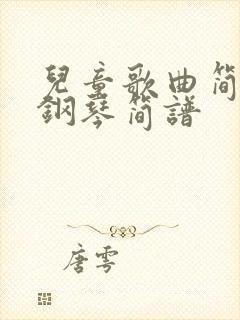 兒童歌曲简
鋼琴简譜
唐雩